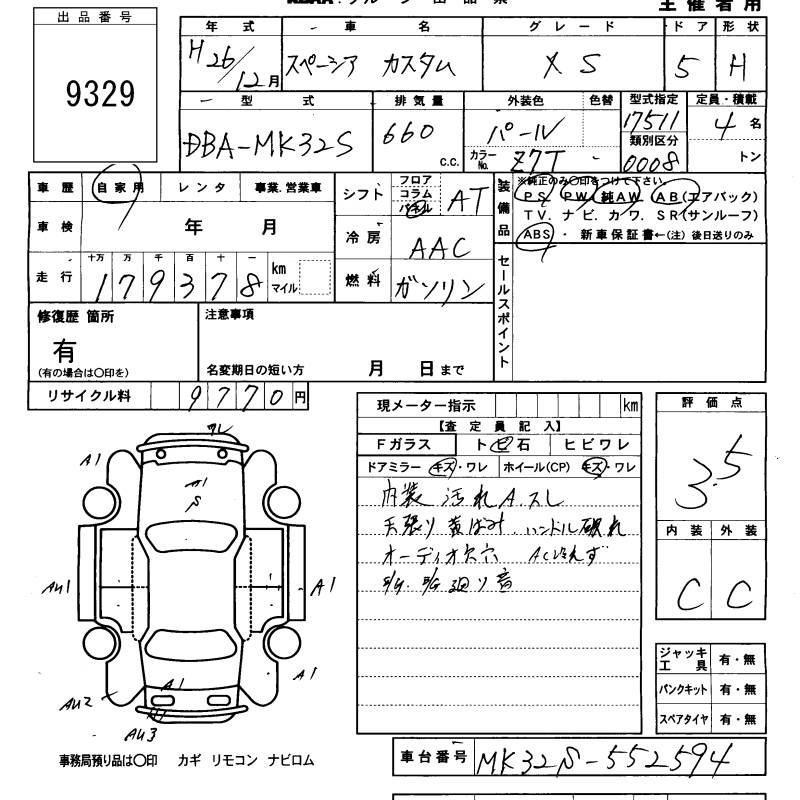 主催者用
出品番号
9329
年式 車名 グレード ドア 形状
H26/12月 スペーシア カスタム XS 5 H
型式 排気量 外装色 色替 型式指定 定員・積載
DBA-MK32S 660 c.c. パール 17511 4名
カラーNo. Z7T - 類別区分 0008 トン
車歴 自家用 レンタ 事業.営業車
シフト フロア コラム パネル AT
装備品 ※純正のみ〇印をつけて下さい。
PS PW 純AW AB(エアバック)
TV. ナビ. カワ. SR(サンルーフ)
ABS ・ 新車保証書←(注) 後日送りのみ
車検 年 月
冷房 AAC
走行 十万 万 千 百 十 一
179378 km マイル
燃料 ガソリン
セールスポイント
修復歴 箇所
有
(有の場合は〇印を)
注意事項
名変期日の短い方 月 日まで
リサイクル料 9770円
現メーター指示 km
【査定員記入】
Fガラス トビ石 ヒビワレ
ドアミラー キズ・ワレ ホイール(CP) キズ・ワレ
内装 汚れ A スレ
天張り 黄ばみ. ハンドル破れ
オーディオ欠穴 AC冷えず
廻り音
評価点
3.5
内装 外装
C C
ジャッキ工具 有・無
パンクキット 有・無
スペアタイヤ 有・無
ワレ
A1
A1
S
AU1
A1
AU2
A1
A1
AU3
事務局預り品は〇印 カギ リモコン ナビロム
車台番号 MK32S-552594